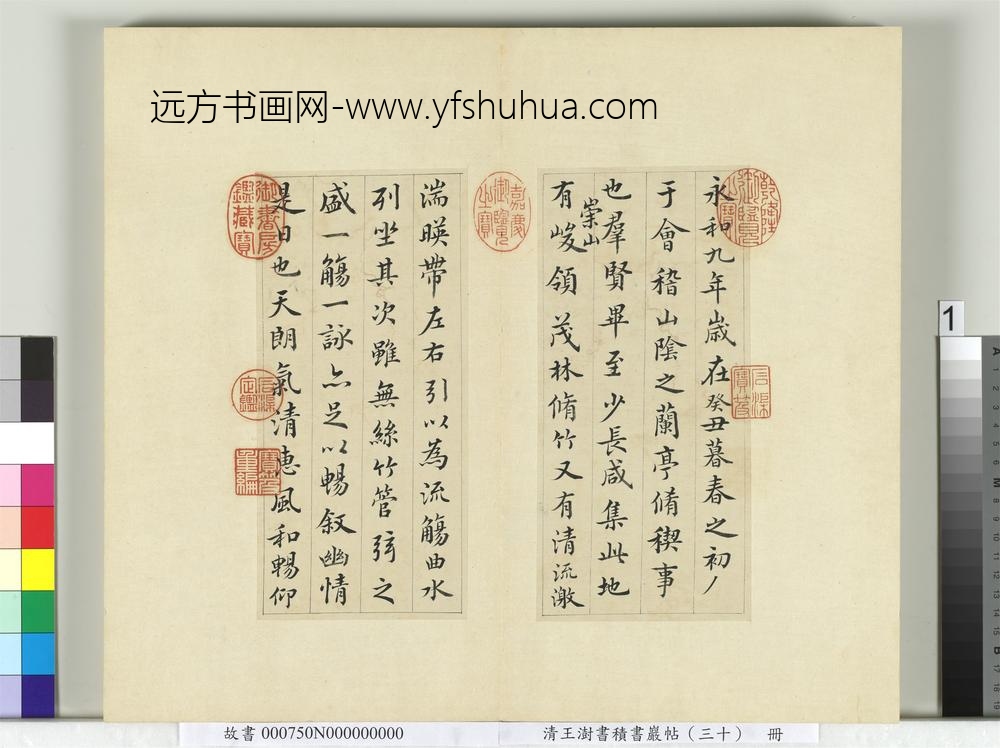 远方书画网-www.yfshuhua.com
永和九年歲在癸丑暮春之初
于會稽山陰之蘭亭脩稧事
也羣賢畢至少長咸集此地
有崇山峻領茂林脩竹又有清流激
湍暎帶左右引以為流觴曲水
列坐其次雖無絲竹管弦之
盛一觴一詠亦足以暢叙幽情
是日也天朗氣清惠風和暢仰
乾隆御覽之寶
嘉慶御覽之寶
御書房鑑藏寶
石渠寶笈
石渠定鑑
寶笈重編
1
故書 000750N000000000
清王澍書積書巖帖（三十） 冊